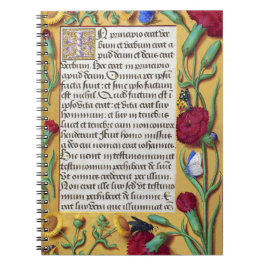 In principio erat ver
bum et verbum erat a
pud deum et deus erat
verbum. Hoc erat in principio
apud deum. Omnia per ipsū
facta sunt: et sine ipso factum
est nichil. Quod factum est in
ipso vita erat: et vita erat lux
hominum: et lux in tenebris
lucet et tenebre eam non com
prehenderunt. Fuit homo missus
a deo cui nomen erat iohannes.
Hic venit in testimonium
ut testimonium perhiberet de lu
mine: ut omnes crederent per illum.
Non erat ille lux sed ut testimo
nium perhiberet de lumine.
Erat lux vera que illuminat